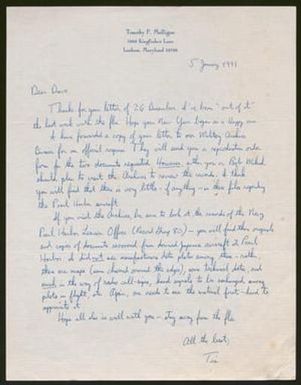 Timothy P. Mulligan
7000 Kingfisher Lane
Lanham, Maryland 20706
5 January 1991
Dear Dave
Thanks for your letter of 26 December. I've been "out of it"
the last week with the flu. Hope your New Year began on a happy one.
I have forwarded a copy of your letter to our Military Archives
Division for an official response. They will send you a reproduction order
form for the two documents requested. However, either you or Bob
should plan to visit the Archives to review the records. I think
you will find that there is very little - if anything - in these files regarding
the Pearl Harbor aircraft.
If you visit the Archives, be sure to look at the records of the Navy
Pearl Harbor Liaison Office (Record Group 80) - you will find there originals
and copies of documents recovered from downed Japanese aircraft at Pearl
Harbor. I did not see manufacturers data plates among these - rather,
there are maps (some charred around the edges), some technical data, and
much in the way of radio call-signs, hand signals to be exchanged among
pilots in flight, etc. Again, one needs to see the material first-hand to
appreciate it.
Hope all else is well with you - stay away from the flu.
All the best,
Tim